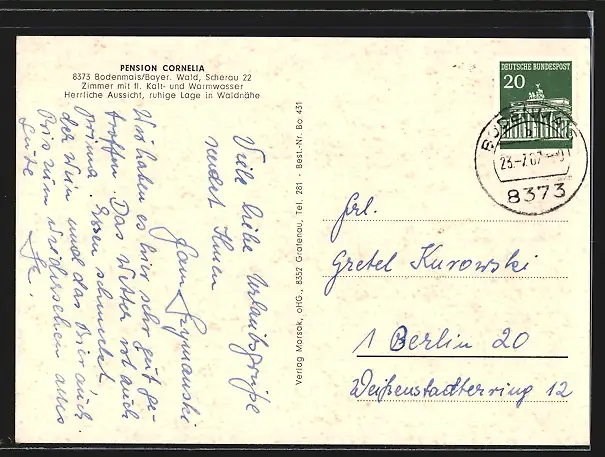 PENSION CORNELIA
8373 Bodenmais/Bayer. Wald, Scherau 22
Zimmer mit fl. Kalt- und Warmwasser
Herrliche Aussicht, ruhige Lage in Waldnähe
Viele liebe Urlaubsgrüße
sendet Ihnen
Fam.
Wir haben es hier sehr gut ge-
troffen. Das Wetter ist auch
prima. Essen schmeckt
der Wein und das Bier auch.
Bis zum Wiedersehen alles
Gute
Verlag Marsak, oHG., 8352 Grafenau, Tel. 281 - Best.-Nr. Bo 431
DEUTSCHE BUNDESPOST
20
BODENMAIS
8373
Frl.
Gretel Kurowski
1 Berlin 20
Weißenstadterring 12